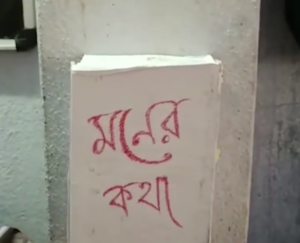 মনের
কথা